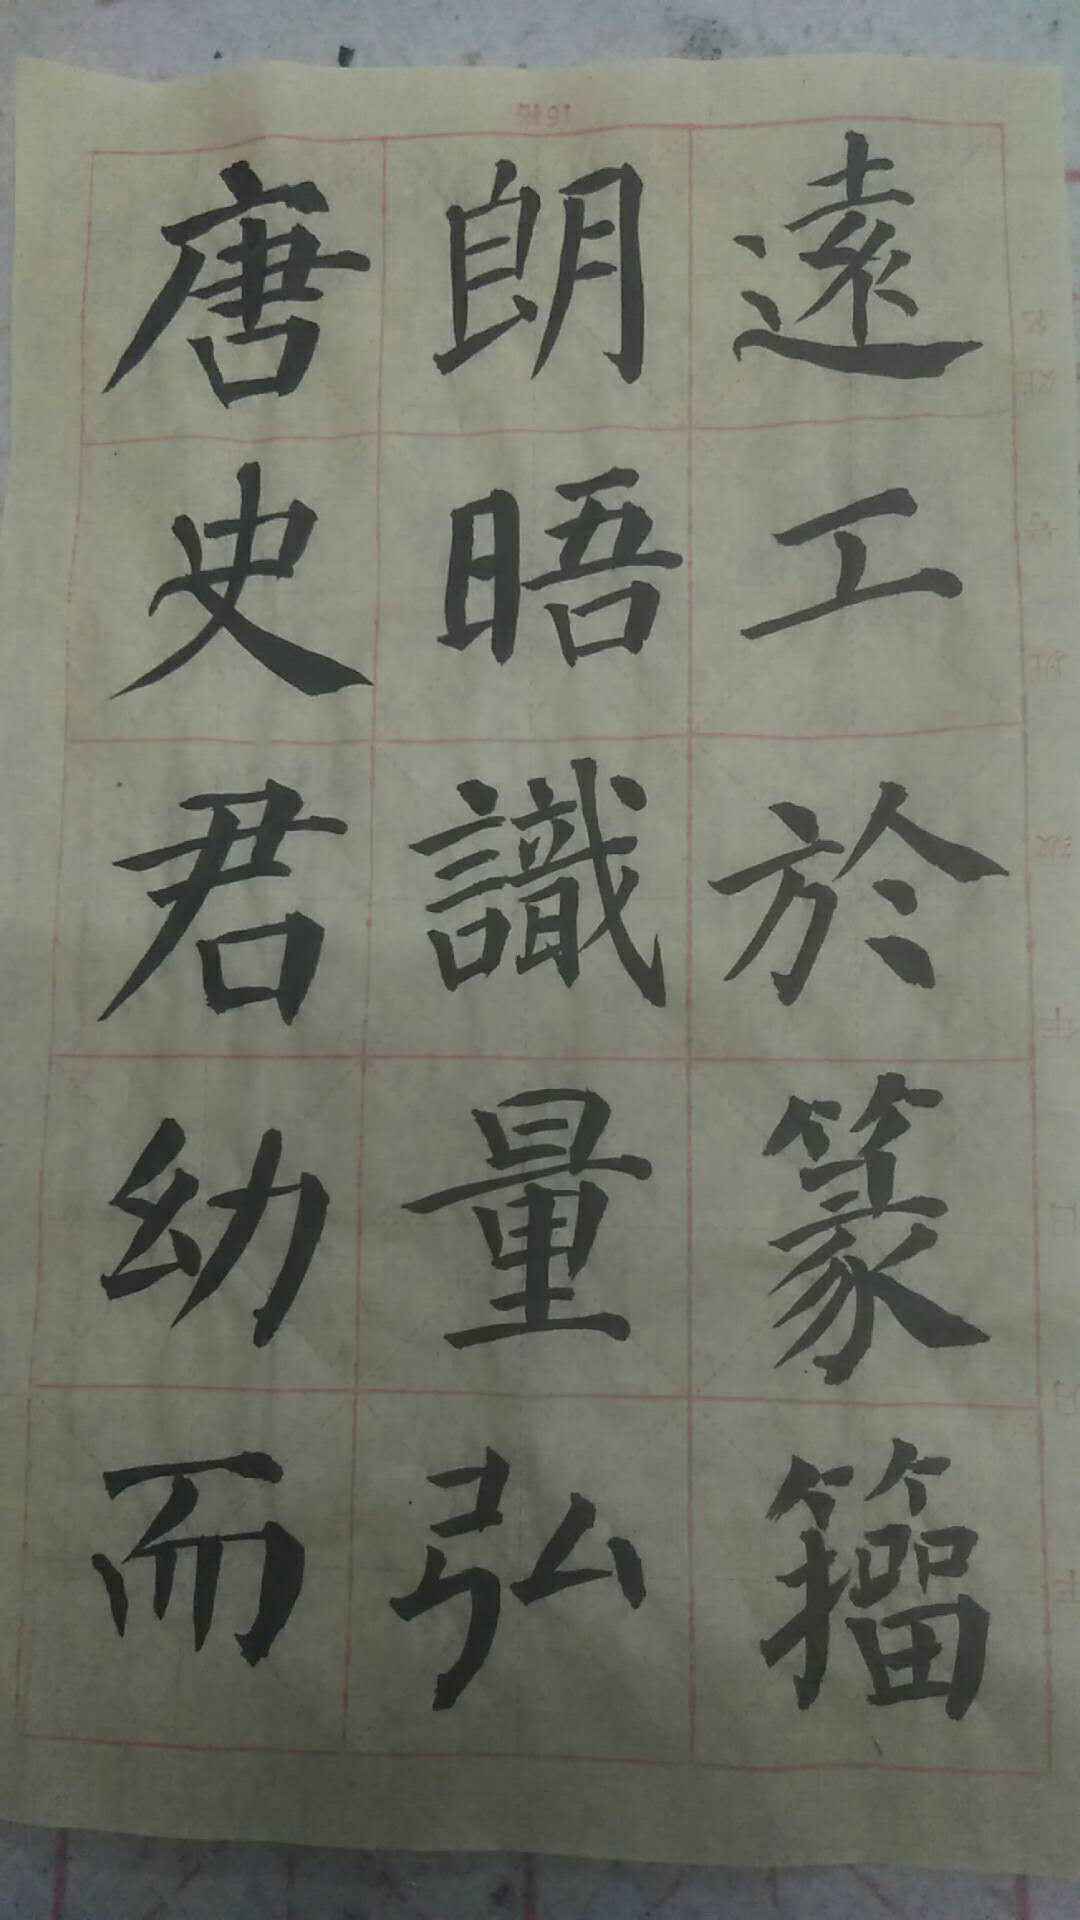 唐史君幼而
朗晤識量弘
遠工於篆籀